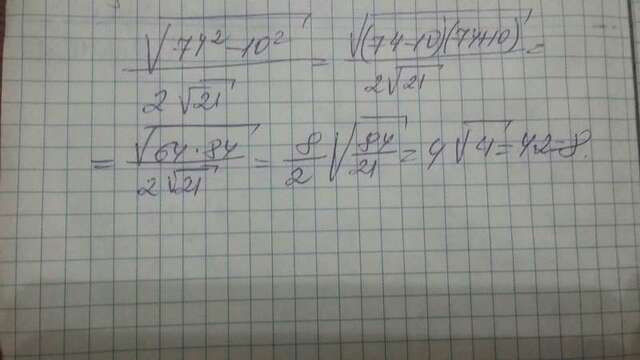 √(74² - 10²) / 2√21 = √((74-10)(74+10)) / 2√21 =
= √(64·84) / 2√21 = 8/2 √(84/21) = 4√4 = 4·2 = 8.